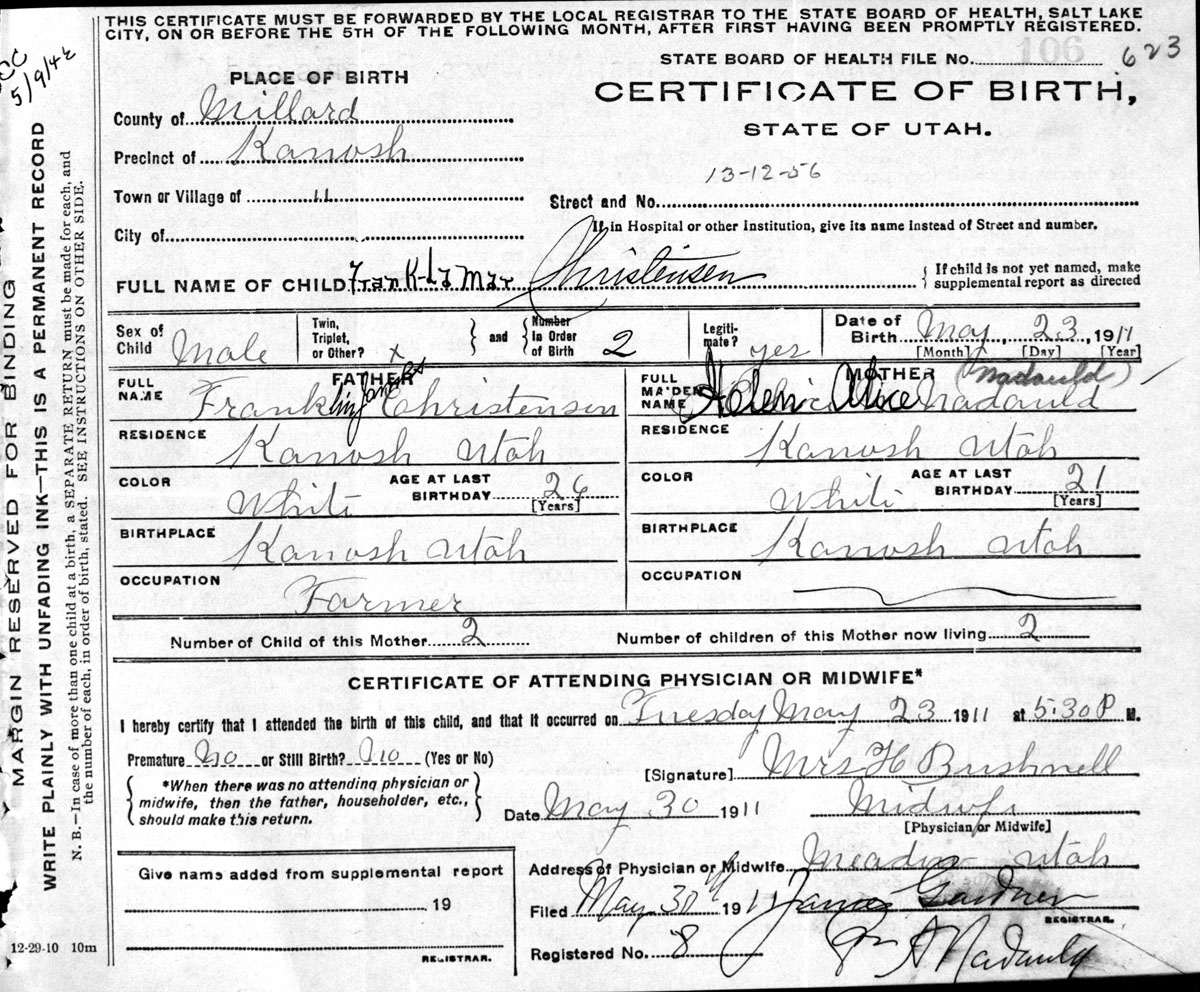 THIS CERTIFICATE MUST BE FORWARDED BY THE LOCAL REGISTRAR TO THE STATE BOARD OF HEALTH, SALT LAKE
CITY, ON OR BEFORE THE 5TH OF THE FOLLOWING MONTH, AFTER FIRST HAVING BEEN PROMPTLY REGISTERED.
5/9/42
MARGIN RESERVED FOR BINDING
WRITE PLAINLY WITH UNFADING INK—THIS IS A PERMANENT RECORD
N. B.—In case of more than one child at a birth, a SEPARATE RETURN must be made for each, and
the number of each, in order of birth, stated. SEE INSTRUCTIONS ON OTHER SIDE.
PLACE OF BIRTH
STATE BOARD OF HEALTH FILE NO. 623
106
CERTIFICATE OF BIRTH,
STATE OF UTAH.
County of Millard
Precinct of Kanosh
Town or Village of 11
City of
13-12-56
Street and No.
If in Hospital or other Institution, give its name instead of Street and number.
FULL NAME OF CHILD Frank-La Mar Christensen
{ If child is not yet named, make
supplemental report as directed
Sex of Child Male
Twin, Triplet, or Other? x
and
Number in Order of Birth 2
Legiti- mate? yes
Date of Birth May 23, 1911
[Month] [Day] [Year]
FATHER
FULL NAME Franklin James Christensen
RESIDENCE Kanosh Utah
COLOR White
AGE AT LAST BIRTHDAY 26
[Years]
BIRTHPLACE Kanosh Utah
OCCUPATION Farmer
MOTHER (Nadauld)
FULL MAIDEN NAME Helen Alice Nadauld
RESIDENCE Kanosh Utah
COLOR White
AGE AT LAST BIRTHDAY 21
[Years]
BIRTHPLACE Kanosh Utah
OCCUPATION
Number of Child of this Mother 2
Number of children of this Mother now living 2
CERTIFICATE OF ATTENDING PHYSICIAN OR MIDWIFE*
I hereby certify that I attended the birth of this child, and that it occurred on Tuesday May 23 1911 at 5:30 P M.
Premature No or Still Birth? No (Yes or No)
{ *When there was no attending physician or
midwife, then the father, householder, etc.,
should make this return. }
[Signature] Mrs H Bushnell
Date May 30 1911
Midwife
[Physician or Midwife]
Address of Physician or Midwife Meadow Utah
Filed May 30th 1911 James Gardner
REGISTRAR.
Registered No. 8
A Nadauld
Give name added from supplemental report
19
REGISTRAR.
12-29-10 10m